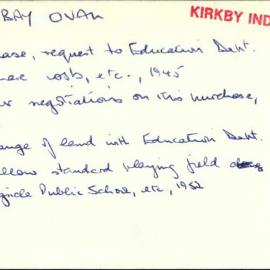 BAY OVAL
KIRKBY IND
ase, request to Education Dept.
costs, etc., 1945
negotiations on this purchase,
ange of land with Education Dept.
llow standard playing field
Public School, etc, 1952